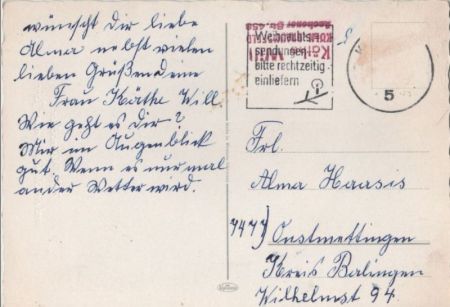 wünscht dir liebe
Alma nebst vielen
lieben Grüßen deine
Frau Käthe Will
Wie geht es dir?
Mir im Augenblick
gut. Wenn es nur mal
ander Wetter wird.
Weihnachts-
sendungen
bitte rechtzeitig
einliefern
Käthe Will
KÖLN-
Aachener Str. 458
5
Frl.
Alma Haasis
7477) Onstmettingen
Kreis Balingen
Wilhelmst 94